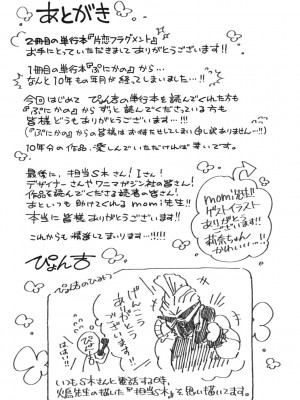 あとがき
2冊目の単行本『片恋フラグメント』を
お手にとっていただきましてありがとうございます!!
1冊目の単行本『ぷにかの』から…
なんと10年もの年月が経ってしまいました…!!
今回はじめて ぴょん吉の単行本を読んでくれた方も
『ぷにかの』から ずっと読んでくださっている方も
皆様どうもありがとうございます…!!!
(『ぷにかの』からの皆様は お待たせしてしまい申し訳ありません…!!)
10年分の作品、楽しんでいただければ幸いです。
最後に、担当S木さん!Iさん!
デザイナーさんやワニマガジン社の皆さん!
作品を読んでくださる読者の皆さん!
あといつも助けてくれるmomi先生!!
本当に皆様ありがとうございます!!
これからも精進してまいります…!!!!
ぴょん吉
momi先生!!
ゲストイラスト
ありがとう
ございます!!
莉奈ちゃん
かわいい…!!!
ぴょん吉のひみつ
げんこう
ありがとう
ございます!
ぴょん吉
はは…!!
いつもS木さんと電話する時、
先生の描いた『担当S木』を思い描いてます。